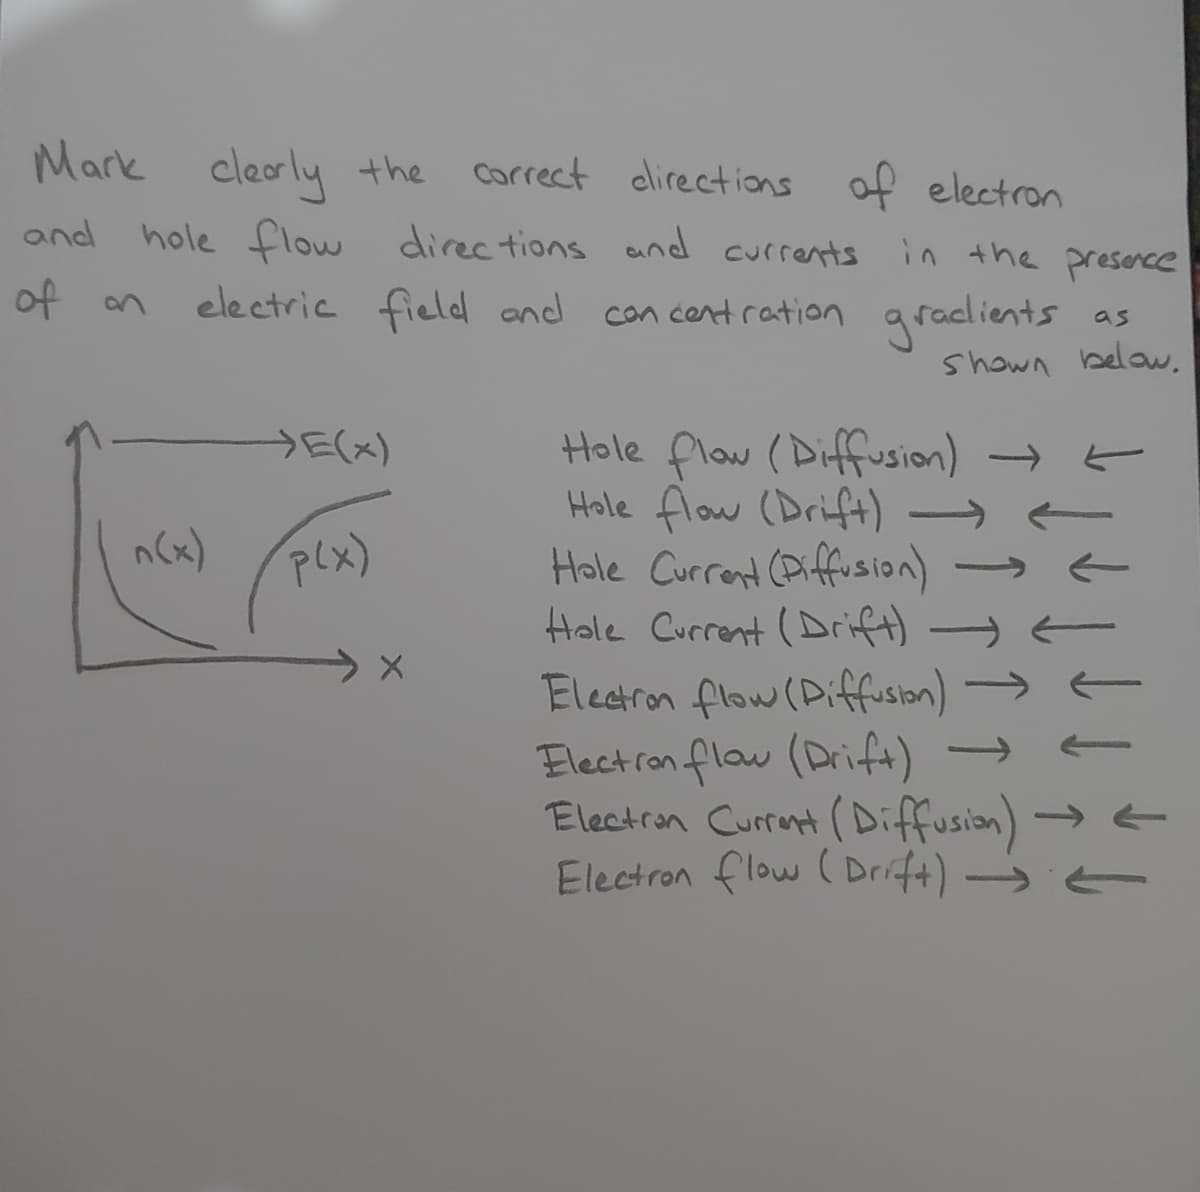 Mark clearly the correct directions of electron
and hole flow directions and currents in the presence
of an electric field and concentration gradients as
shown below.
→E(x)
n(x)
p(x)
x
Hole flow (Diffusion) → ←
Hole flow (Drift) → ←
Hole Current (Diffusion) → ←
Hole Current (Drift) → ←
Electron flow (Diffusion) → ←
Electron flow (Drift) → ←
Electron Current (Diffusion) → ←
Electron flow (Drift) → ←